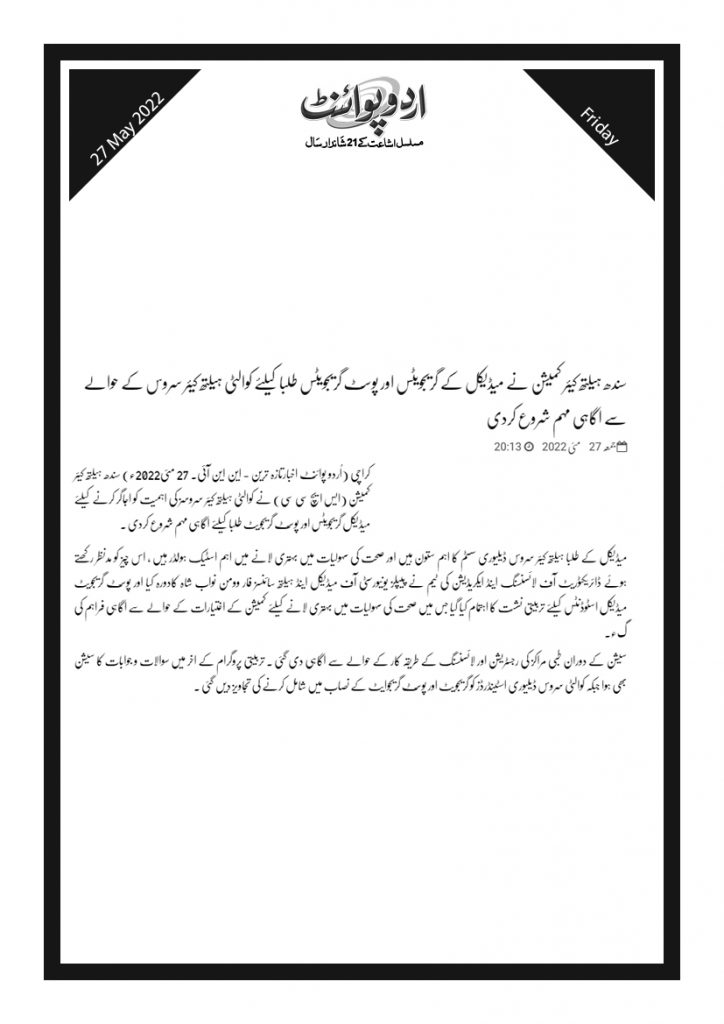 27 May 2022
Friday
اردو پوائنٹ
مسلسل اشاعت کے 21 شاندار سال
سندھ ہیلتھ کیئر کمیشن نے میڈیکل کے گریجویٹس اور پوسٹ گریجویٹس طلبا کیلئے کوالٹی ہیلتھ کیئر سروس کے حوالے
سے اگاہی مہم شروع کردی
جمعہ 27 مئی 2022 20:13
کراچی (اُردو پوائنٹ اخبارتازہ ترین - این این آئی۔ 27 مئی2022ء) سندھ ہیلتھ کیئر
کمیشن (ایس ایچ سی سی) نے کوالٹی ہیلتھ کیئر سروسز کی اہمیت کو اجاگر کرنے کیلئے
میڈیکل گریجویٹس اور پوسٹ گریجویٹ طلبا کیلئے اگاہی مہم شروع کردی ۔
میڈیکل کے طلبا ہیلتھ کیئر سروس ڈیلیوری سسٹم کا اہم ستون ہیں اور صحت کی سہولیات میں بہتری لانے میں اہم اسٹیک ہولڈر ہیں ، اس چیز کو مدنظر رکھتے
ہوئے ڈائریکٹوریٹ آف لائسنسنگ اینڈ ایکریڈیشن کی ٹیم نے پیپلز یونیورسٹی آف میڈیکل اینڈ ہیلتھ سائنسز فار وومن نواب شاہ کادورہ کیا اور پوسٹ گریجویٹ
میڈیکل اسٹوڈنٹس کیلئے تربیتی نشست کا اہتمام کیا گیا جس میں صحت کی سہولیات میں بہتری لانے کیلئے کمیشن کے اختیارات کے حوالے سے اگاہی فراہم کی
گء۔
سیشن کے دوران طبی مراکز کی رجسٹریشن اور لائسنسنگ کے طریقہ کار کے حوالے سے اگاہی دی گئی ۔ تربیتی پروگرام کے اخر میں سوالات و جوابات کا سیشن
بھی ہوا جبکہ کوالٹی سروس ڈیلیوری اسٹینڈرڈز کو گریجویٹ اور پوسٹ گریجوایٹ کے نصاب میں شامل کرنے کی تجاویز دیں گئی ۔